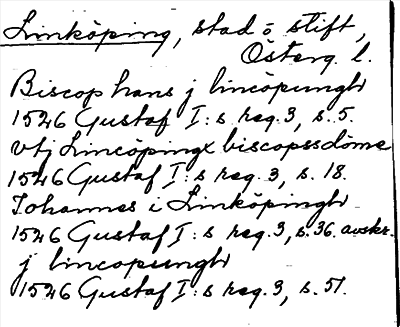 Linköping, stad o stift,
Österg. l.
Biscop hans j lincöpungh
1526 Gustaf I:s reg. 3, s. 5.
vtj Lincöpingx biscopsdöme
1526 Gustaf I:s reg. 3, s. 18.
Johannes i Linköpingh
1526 Gustaf I:s reg. 3, s. 36. avskr.
j lincopungh
1526 Gustaf I:s reg. 3, s. 51.